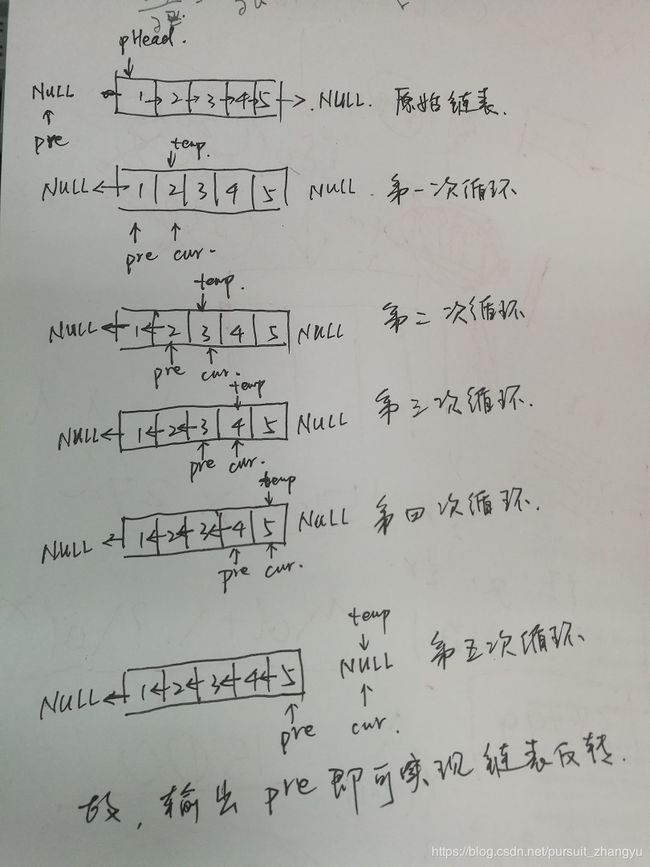 pHead.
NULL 1 → 2 → 3 → 4 → 5 → NULL. 原始链表.
pre
temp.
NULL ← 1 2 3 4 5 NULL. 第一次循环
pre cur.
temp.
NULL ← 1 ← 2 3 4 5 NULL 第二次循环
pre cur.
temp
NULL ← 1 ← 2 ← 3 4 5 NULL 第三次循环.
pre cur.
temp
NULL ← 1 ← 2 ← 3 ← 4 5 NULL 第四次循环.
pre cur.
temp
NULL ← 1 ← 2 ← 3 ← 4 ← 5 NULL 第五次循环
pre cur.
故, 输出 pre 即可实现链表反转.
https://blog.csdn.net/pursuit_zhangyu